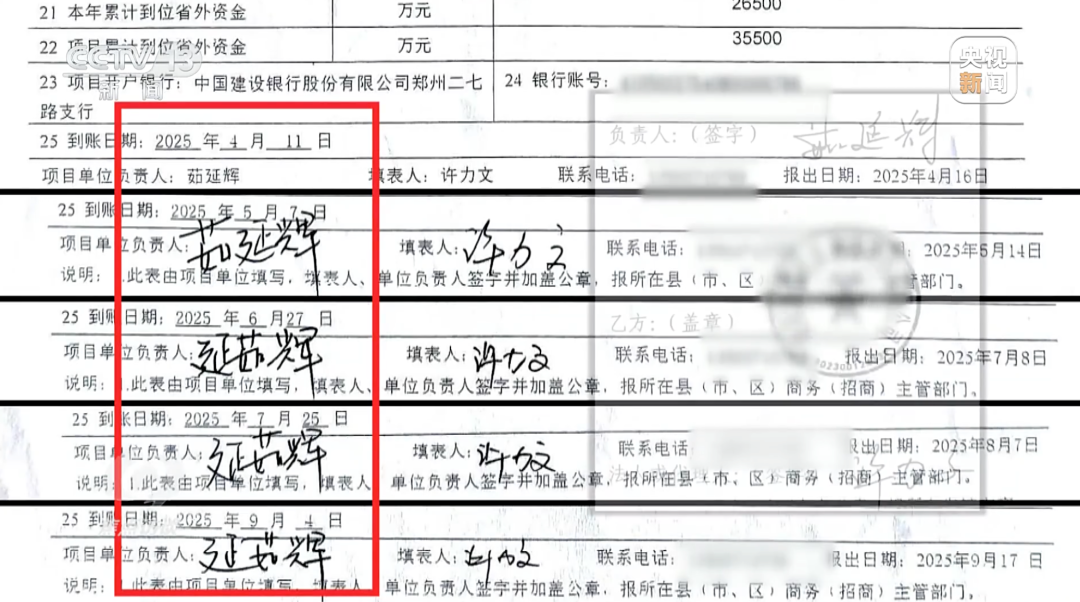 21 本年累计到位省外资金 万元 26500
22 项目累计到位省外资金 万元 35500
CCTV 13 新闻
央视新闻
23 项目开户银行：中国建设银行股份有限公司郑州二七路支行 24 银行账号：
负责人：（签字） 茹延辉
25 到账日期：2025 年 4 月 11 日
项目单位负责人：茹延辉 填表人：许力文 联系电话： 报出日期：2025年4月16日
25 到账日期：2025 年 5 月 7 日
项目单位负责人：茹延辉 填表人：许力文 联系电话： 2025年5月14日
说明：1.此表由项目单位填写，填表人、单位负责人签字并加盖公章，报所在县（市、区） 管部门。
25 到账日期：2025 年 6 月27 日
乙方：（盖章）
项目单位负责人：延茹辉 填表人：许力文 联系电话： 报出日期：2025年7月8日
说明：1.此表由项目单位填写，填表人、单位负责人签字并加盖公章，报所在县（市、区）商务（招商）主管部门。
25 到账日期：2025 年 7 月 25 日
项目单位负责人：延茹辉 填表人：许力文 联系电话 报出日期：2025年8月7日
说明：1.此表由项目单位填写，填表人、单位负责人签字并加盖公章，报所在县（市、区）商务（招商）主管部门。
25 到账日期：2025 年 9 月 4 日
项目单位负责人：延茹辉 填表人：许力文 联系电话： 报出日期：2025年9月17 日
说明：1.此表由项目单位填写，填表人、单位负责人签字并加盖公章，报所在县（市、区）商务（招商）主管部门。